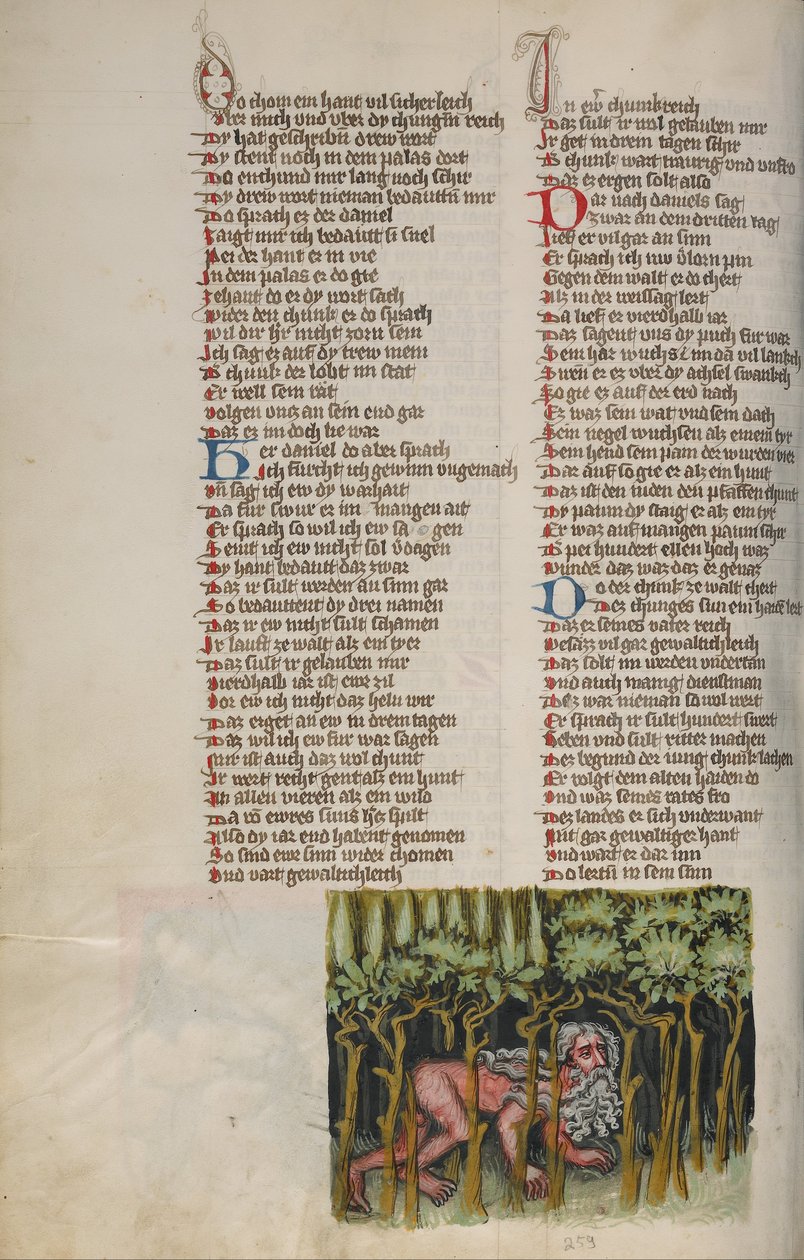 Do chom ein hant vil sicherleich
Vber mich vnd vber dy chungin reich
Dy hat geschribn drew wort
Dy stent noch in dem palas dort
Do enchund mir lang noch schir
Dy drew wort nieman bedauttn mir
Do sprach er der daniel
Zaigt mir ich bedautt si snel
Pei der hant er in vie
In dem palas er do gie
Zehant do er dy wort sach
Wider den chunk er do sprach
Wil dir hr nicht zorn sein
Ich sag ez auf dy trew mein
D chunk der lobt im stat
Er well sein rat
Volgen vntz an sein end gar
Daz ez im doch lie war
Her daniel do aber sprach
Ich furcht ich gewinn vngemach
Vn sag ich ew dy warhait
Da fur swur er im mangen ait
Er sprach so wil ich ew sa gen
Seint ich ew nicht sol vdagen
Dy hant bedautt daz zwar
Daz ir sult werden an sinn gar
So bedauttent dy drei namen
Daz ir ew nicht sult schamen
Ir lauft ze walt alz ein tyer
Daz sult ir gelauben mir
Vierdhalb iar ist ewr zil
Vor ew ich nicht daz heln wir
Daz erget an ew in drein tagen
Daz wil ich ew fur war sagen
Mir ist auch daz wol chunt
Ir wert recht gent alz ein hunt
An allen vieren alz ein wild
Da von ewres suns
Also dy iar end habent genomen
So sind ewr sinn wider chomen
Vnd vart gewaltichleich
In ewr chunkreich
Daz sult ir wol gelauben mir
Ir get in drein tagen schir
D chunk wart traurig vnd vnfro
Daz ez ergen solt also
Dar nach daniels sag
Zwar an dem dritten tag
Lief er vil gar an sinn
Er sprach ich nw vlorn pin
Gegen dem walt er do chert
Alz in der weissag lert
Da lief er vierdhalb iar
Daz sagent vns dy puch fur war
Sein har wuchs im da vil lankch
Swen er ez vber dy achsel swankch
So gie ez auf der erd nach
Ez waz sein wat vnd sein dach
Sein negel wuchsen alz einem tyr
Sein hend sein pain der wurden vier
Dar auf so gie er alz ein hunt
Daz ist den iuden den pfaffen chunt
Dy paum dy staig er alz ein tyr
Er waz auf mangen paum schir
D pei hundert ellen hoch waz
Wunder daz waz daz er genaz
Do der chunk ze walt chert
Dez chunges sun ein haiden lert
Daz er seines vater reich
Besazz vil gar gewaltichleich
Daz solt im werden vndertan
Vnd auch manig dienstman
Dez war nieman so wol wert
Er sprach ir sult hundert swert
Geben vnd sult ritter machen
Dez begund der iung chunk lachen
Er volgt dem alten haiden do
Vnd waz seines rates fro
Dez landes er sich vnderwant
Mit gar gewaltiger hant
Vnd wart er dar inn
Do lertn in sein sinn
259